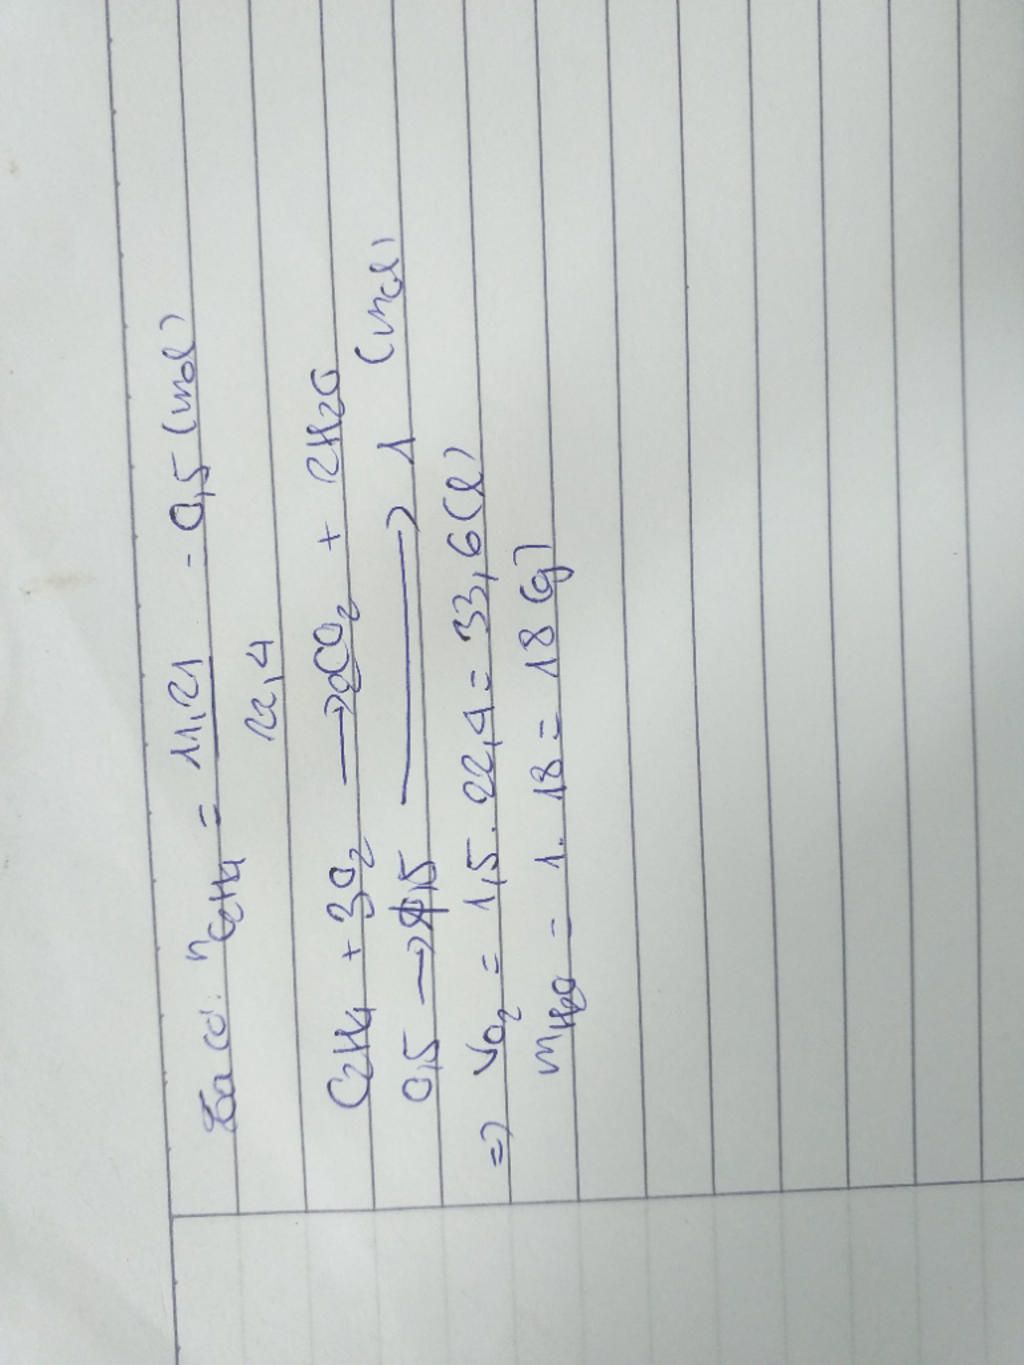 Ta có: nC2H4 = 11,21 - 0,5 (mol)
22,4
C2H4 + 3O2 → 2CO2 + 2H2O
0,5 → 1,5 → 1 (mol)
=> VO2 = 1,5 . 22,4 = 33,6 (l)
mH2O = 1 . 18 = 18 (g)